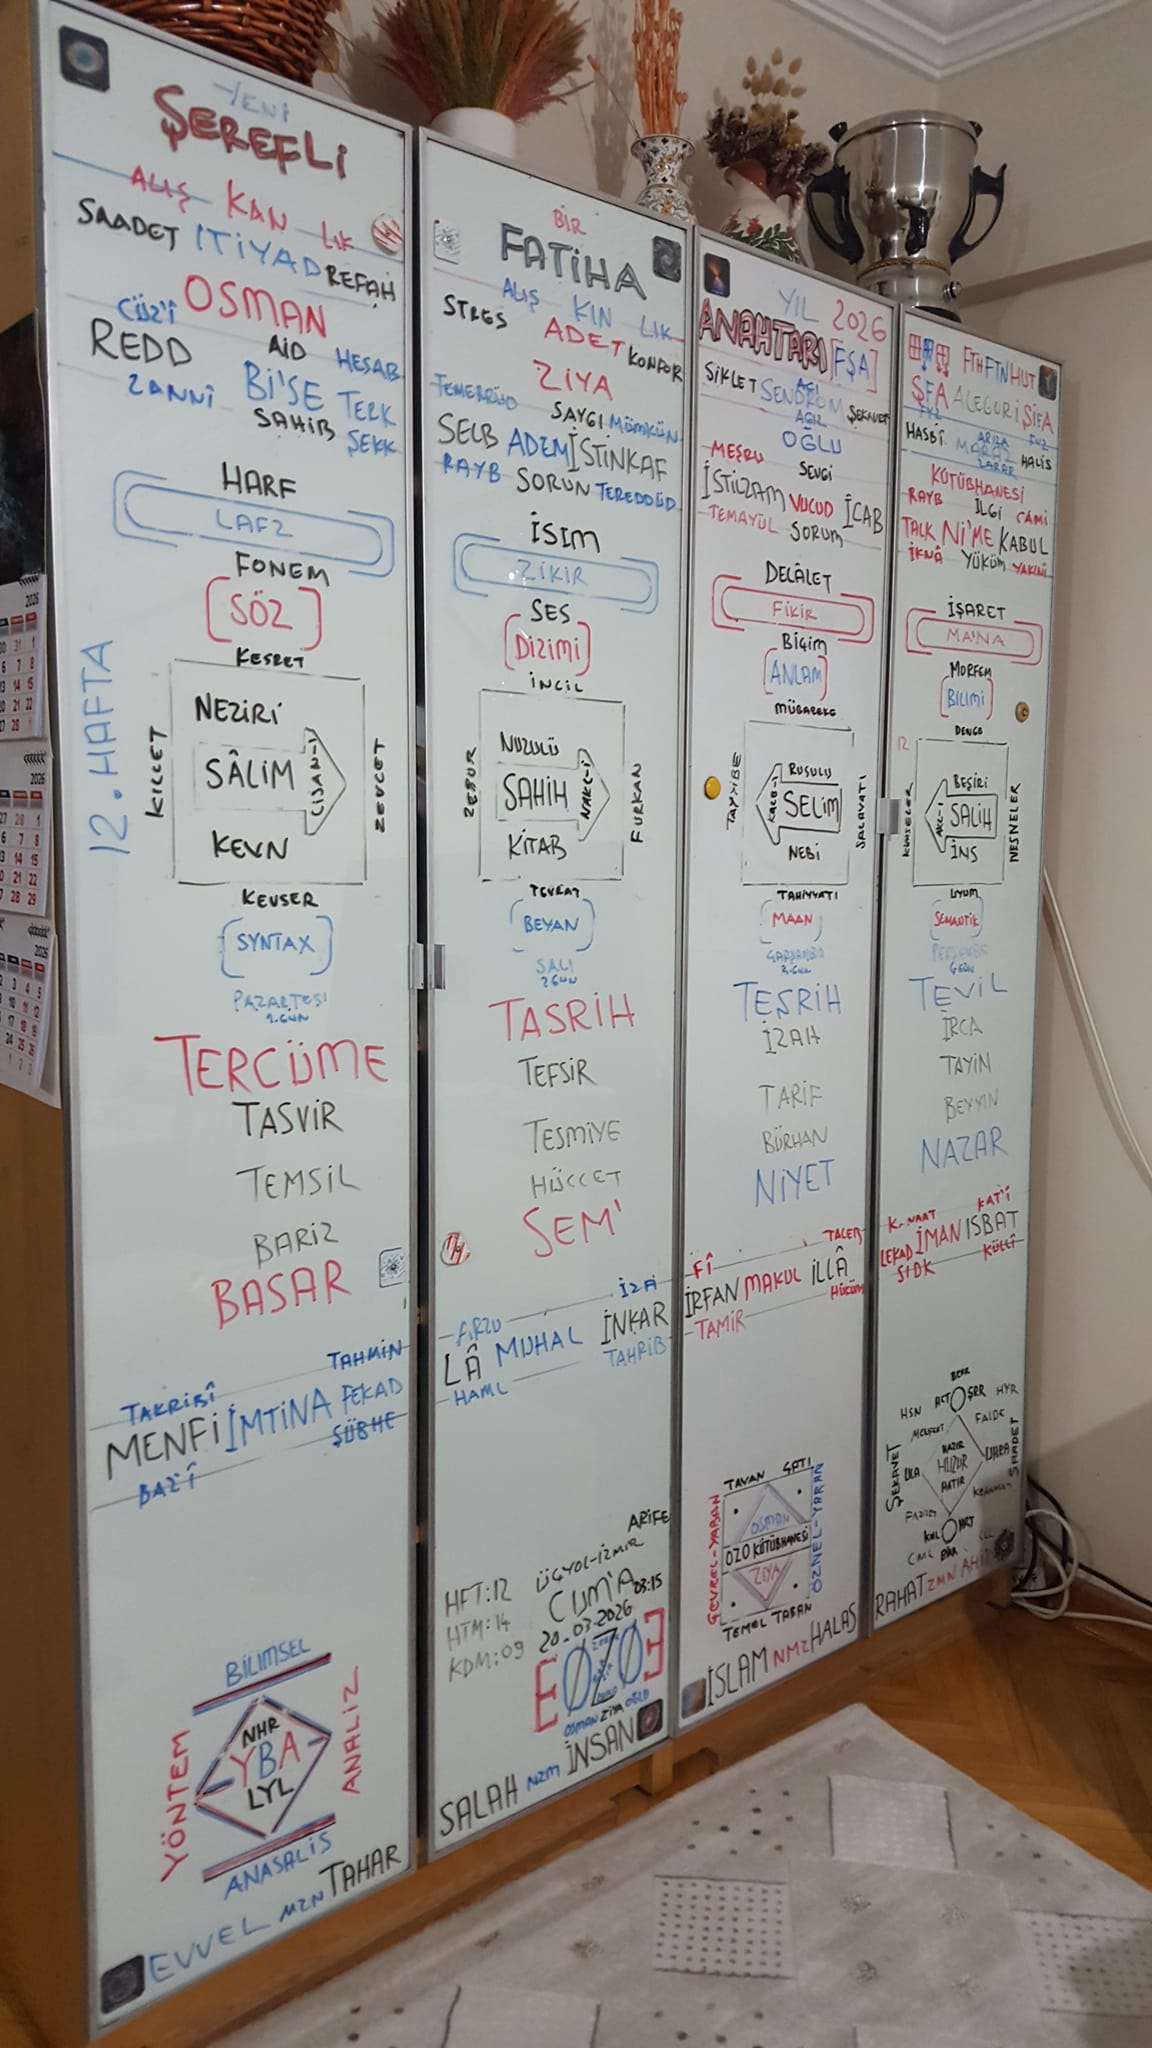 YENİ
ŞEREFLİ
ALIŞ KAN LIK
SAADET İTİYAD REFAH
OSMAN
CÜZ'Î AİD HESAB
REDD Bİ'SE TERK
ZANNİ SAHİB ŞEKK
HARF
LAFZ
FONEM
[SÖZ]
KESRET
NEZİRİ
KILLET SÂLİM LİSAN-I ZEVCET
KEVN
KEVSER
[SYNTAX]
PAZARTESİ
1.GÜN
TERCÜME
TASVİR
TEMSİL
BARİZ
BASAR
TAKRİBÎ TAHMİN
MENFİ İMTİNA FEKAD
BAZ'Î ŞÜBHE
12. HAFTA
BİLİMSEL
YÖNTEM NHR ANALİZ
YBA
LYL
ANASALIS
EVVEL MZN TAHAR
BİR
FATİHA
ALIŞ KIN LIK
STRES ADET KONFOR
ZİYA
TEMERRÜD SAYGI MÜMKÜN
SELB ADEM İSTİNKAF
RAYB SORUN TEREDDÜD
İSİM
ZİKİR
SES
[DİZİMİ]
İNCİL
NUZULÜ
ZEBUR SAHİH NAKL-İ FURKAN
KİTAB
TEVRAT
[BEYAN]
SALI
2.GÜN
TASRİH
TEFSİR
TESMİYE
HÜCCET
SEM'
ARZU İZAFİ
LÂ MUHAL İNKAR
HAML TAHRİB
ARİFE
HFT:12 ÜÇYOL-İZMİR
HTM:14 CUM'A 03:15
KDM:09 20-03-2026
OSMAN ZİYA OĞLU
SALAH NZM İNSAN
YIL 2026
ANAHTARI [FŞA]
AĞI
SIKLET SENDROM ŞEKAVET
AĞIZ
OĞLU
MEŞRU SEVGİ
İSTİLZAM VUCUD İCAB
TEMAYÜL SORUM
DELÂLET
FİKİR
BİÇİM
[ANLAM]
MÜBAREKE
RUSULU
TAYYİBE KALB-İ SELİM SALAVATI
NEBİ
TAHİYYATI
[MAAN]
ÇARŞAMBA
3.GÜN
TEŞRİH
İZAH
TARİF
BÜRHAN
NİYET
FÎ TALEB
İRFAN MAKUL İLLÂ
TAMİR HÜKÜM
TAVAN ÇATI
GEVREL-YABAN OSMAN ÖZNEL-YARAN
OZO KÜTÜBHANESİ
ZİYA
TEMEL TABAN
İSLAM NMZ HALAS
FTH FTN HUT
ŞFA ALEGORİ ŞİFA
HASBİ MARAZ HALİS
ZARAR
KÜTÜBHANESİ
RAYB İLGİ CAMİ
TALK Nİ'ME KABUL
İKNÂ YÜKÜM YAKİNİ
İŞARET
MA'NA
MORFEM
[BİLİMİ]
DENGE
12
BEŞİRİ
KİMSELER AKL-İ SALİH NESNELER
İNS
UYUM
[SEMANTİK]
PERŞEMBE
TEVİL
İRCA
TAYİN
BEYYİN
NAZAR
KANAAT KAT'İ
LEKAD İMAN İSBAT
SIDK KÜLLÎ
HSN ŞRR HYR
FAİDE
ŞEKAVET NAZIR SAADET
ULA HUZUR UHRA
HATIR
CML
RAHAT ZMN AHİR